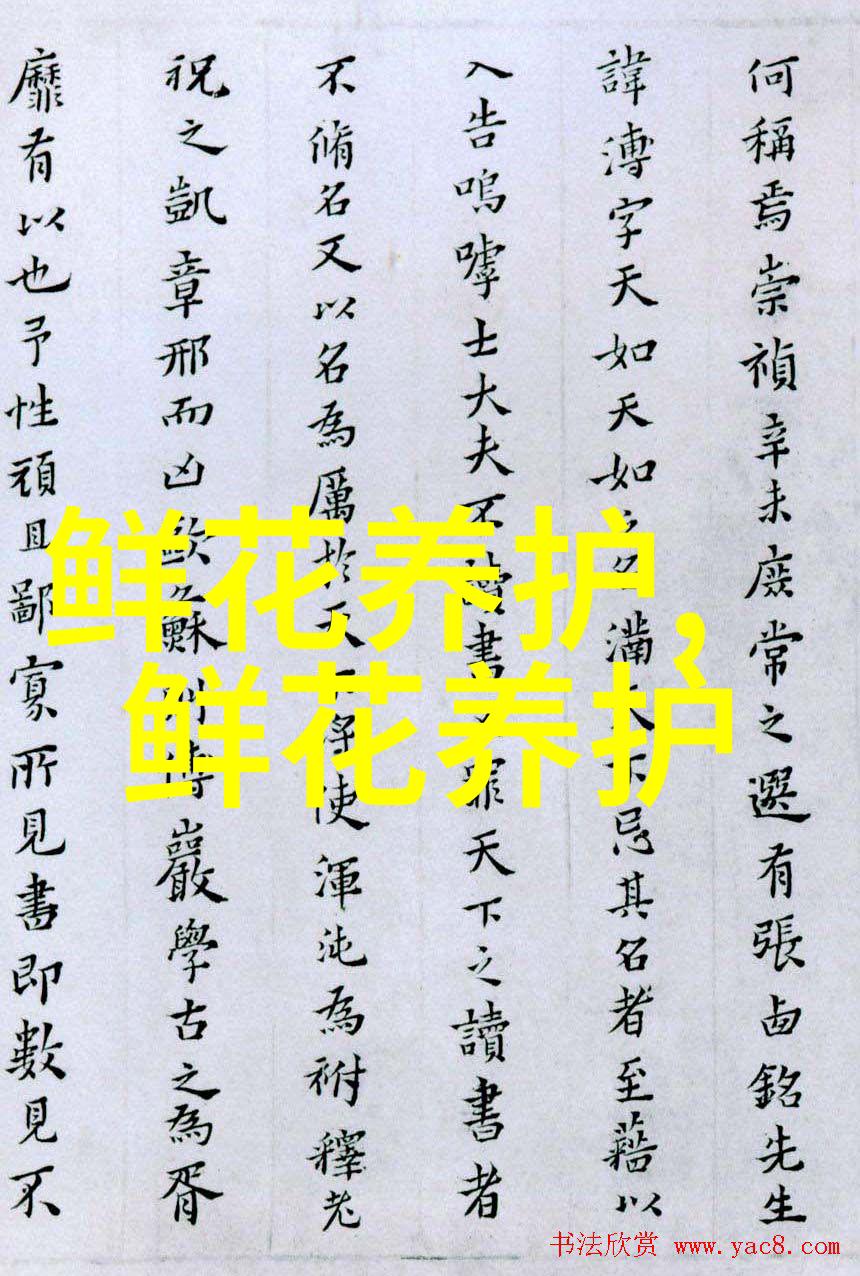 何稱焉崇禎辛未廢常之選有張卤銘先生
諱溥字天如天如之名滿天下忌其名者至藉以
入告嗚嘑士大夫不讀書罪天下之讀書者
不脩名又以名為厲於天下將使渾沌為祔釋老
祝之凱章邢而凶蘇州傳巖學古之為胥
靡有以也予性頑且鄙寡所見書即數見不
鲜花养护,
鲜花养护
书法欣赏 www.yac8.com